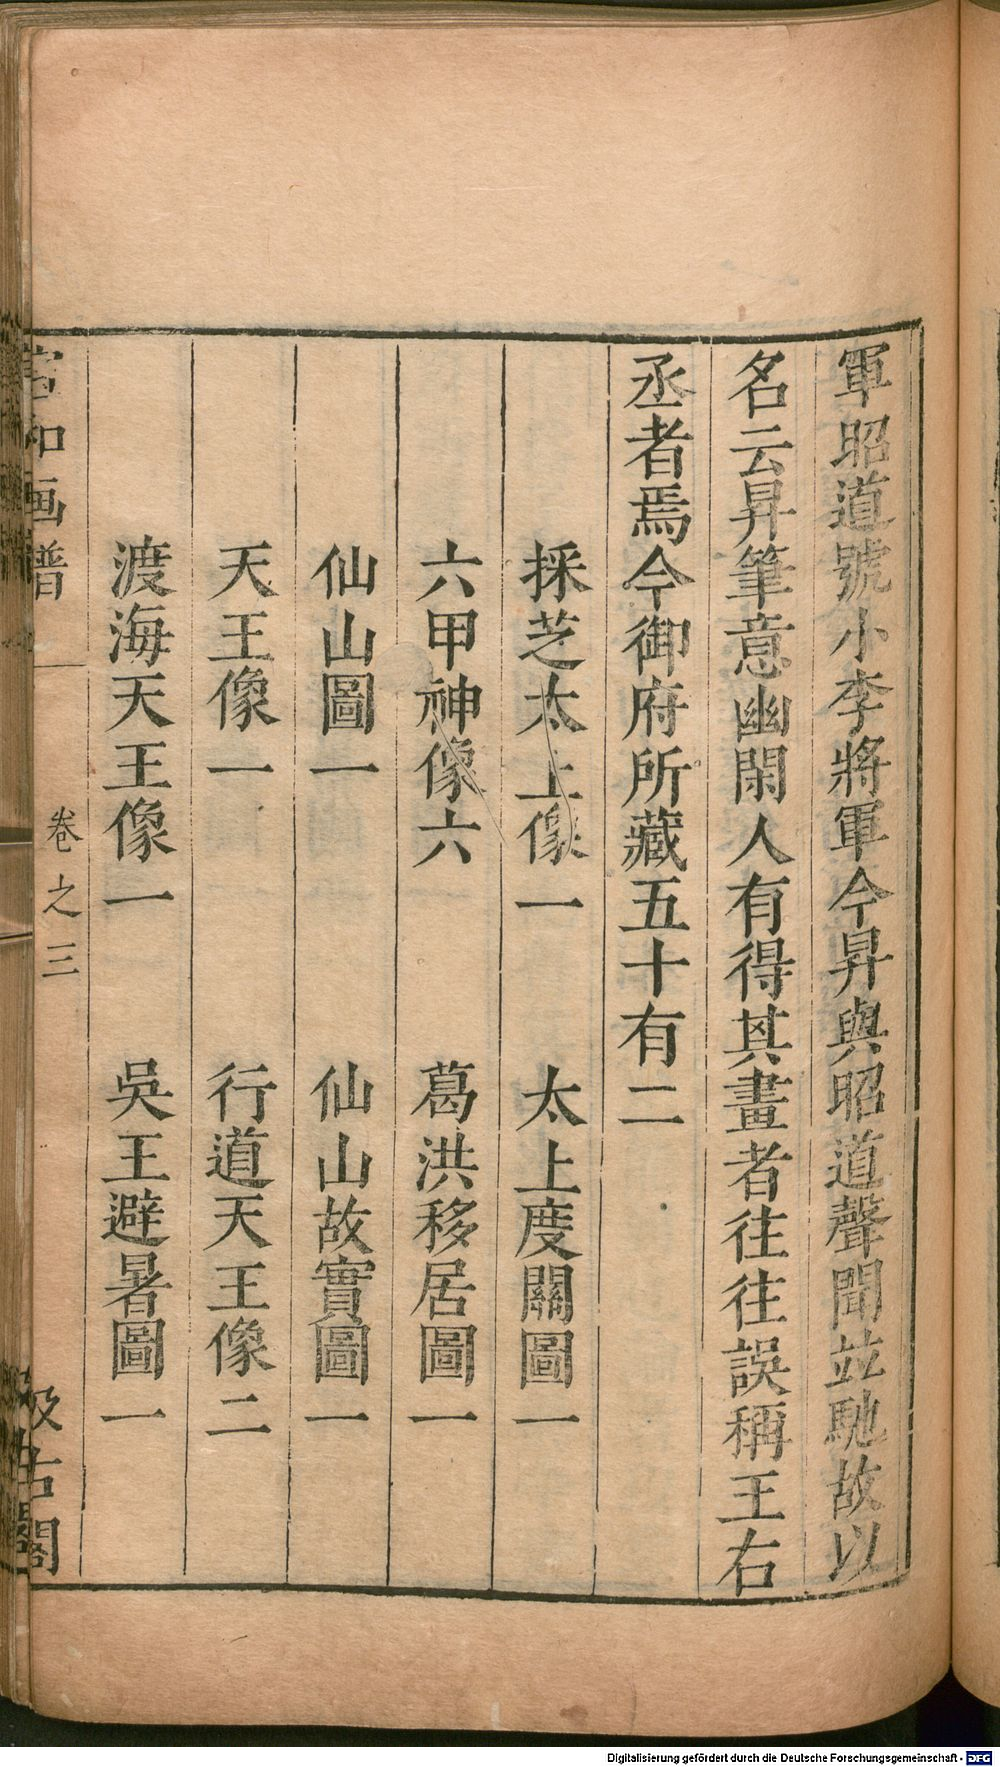 軍昭道號小李將軍今昇與昭道聲聞並馳故以
名云昇筆意幽閑人有得其畫者往往誤稱王右
丞者焉今御府所藏五十有二
採芝太上像一 太上度關圖一
六甲神像六 葛洪移居圖一
仙山圖一 仙山故實圖一
天王像一 行道天王像二
渡海天王像一 吳王避暑圖一
宣和画譜 卷之三 汲古閣
Digitalisierung gefördert durch die Deutsche Forschungsgemeinschaft - DFG